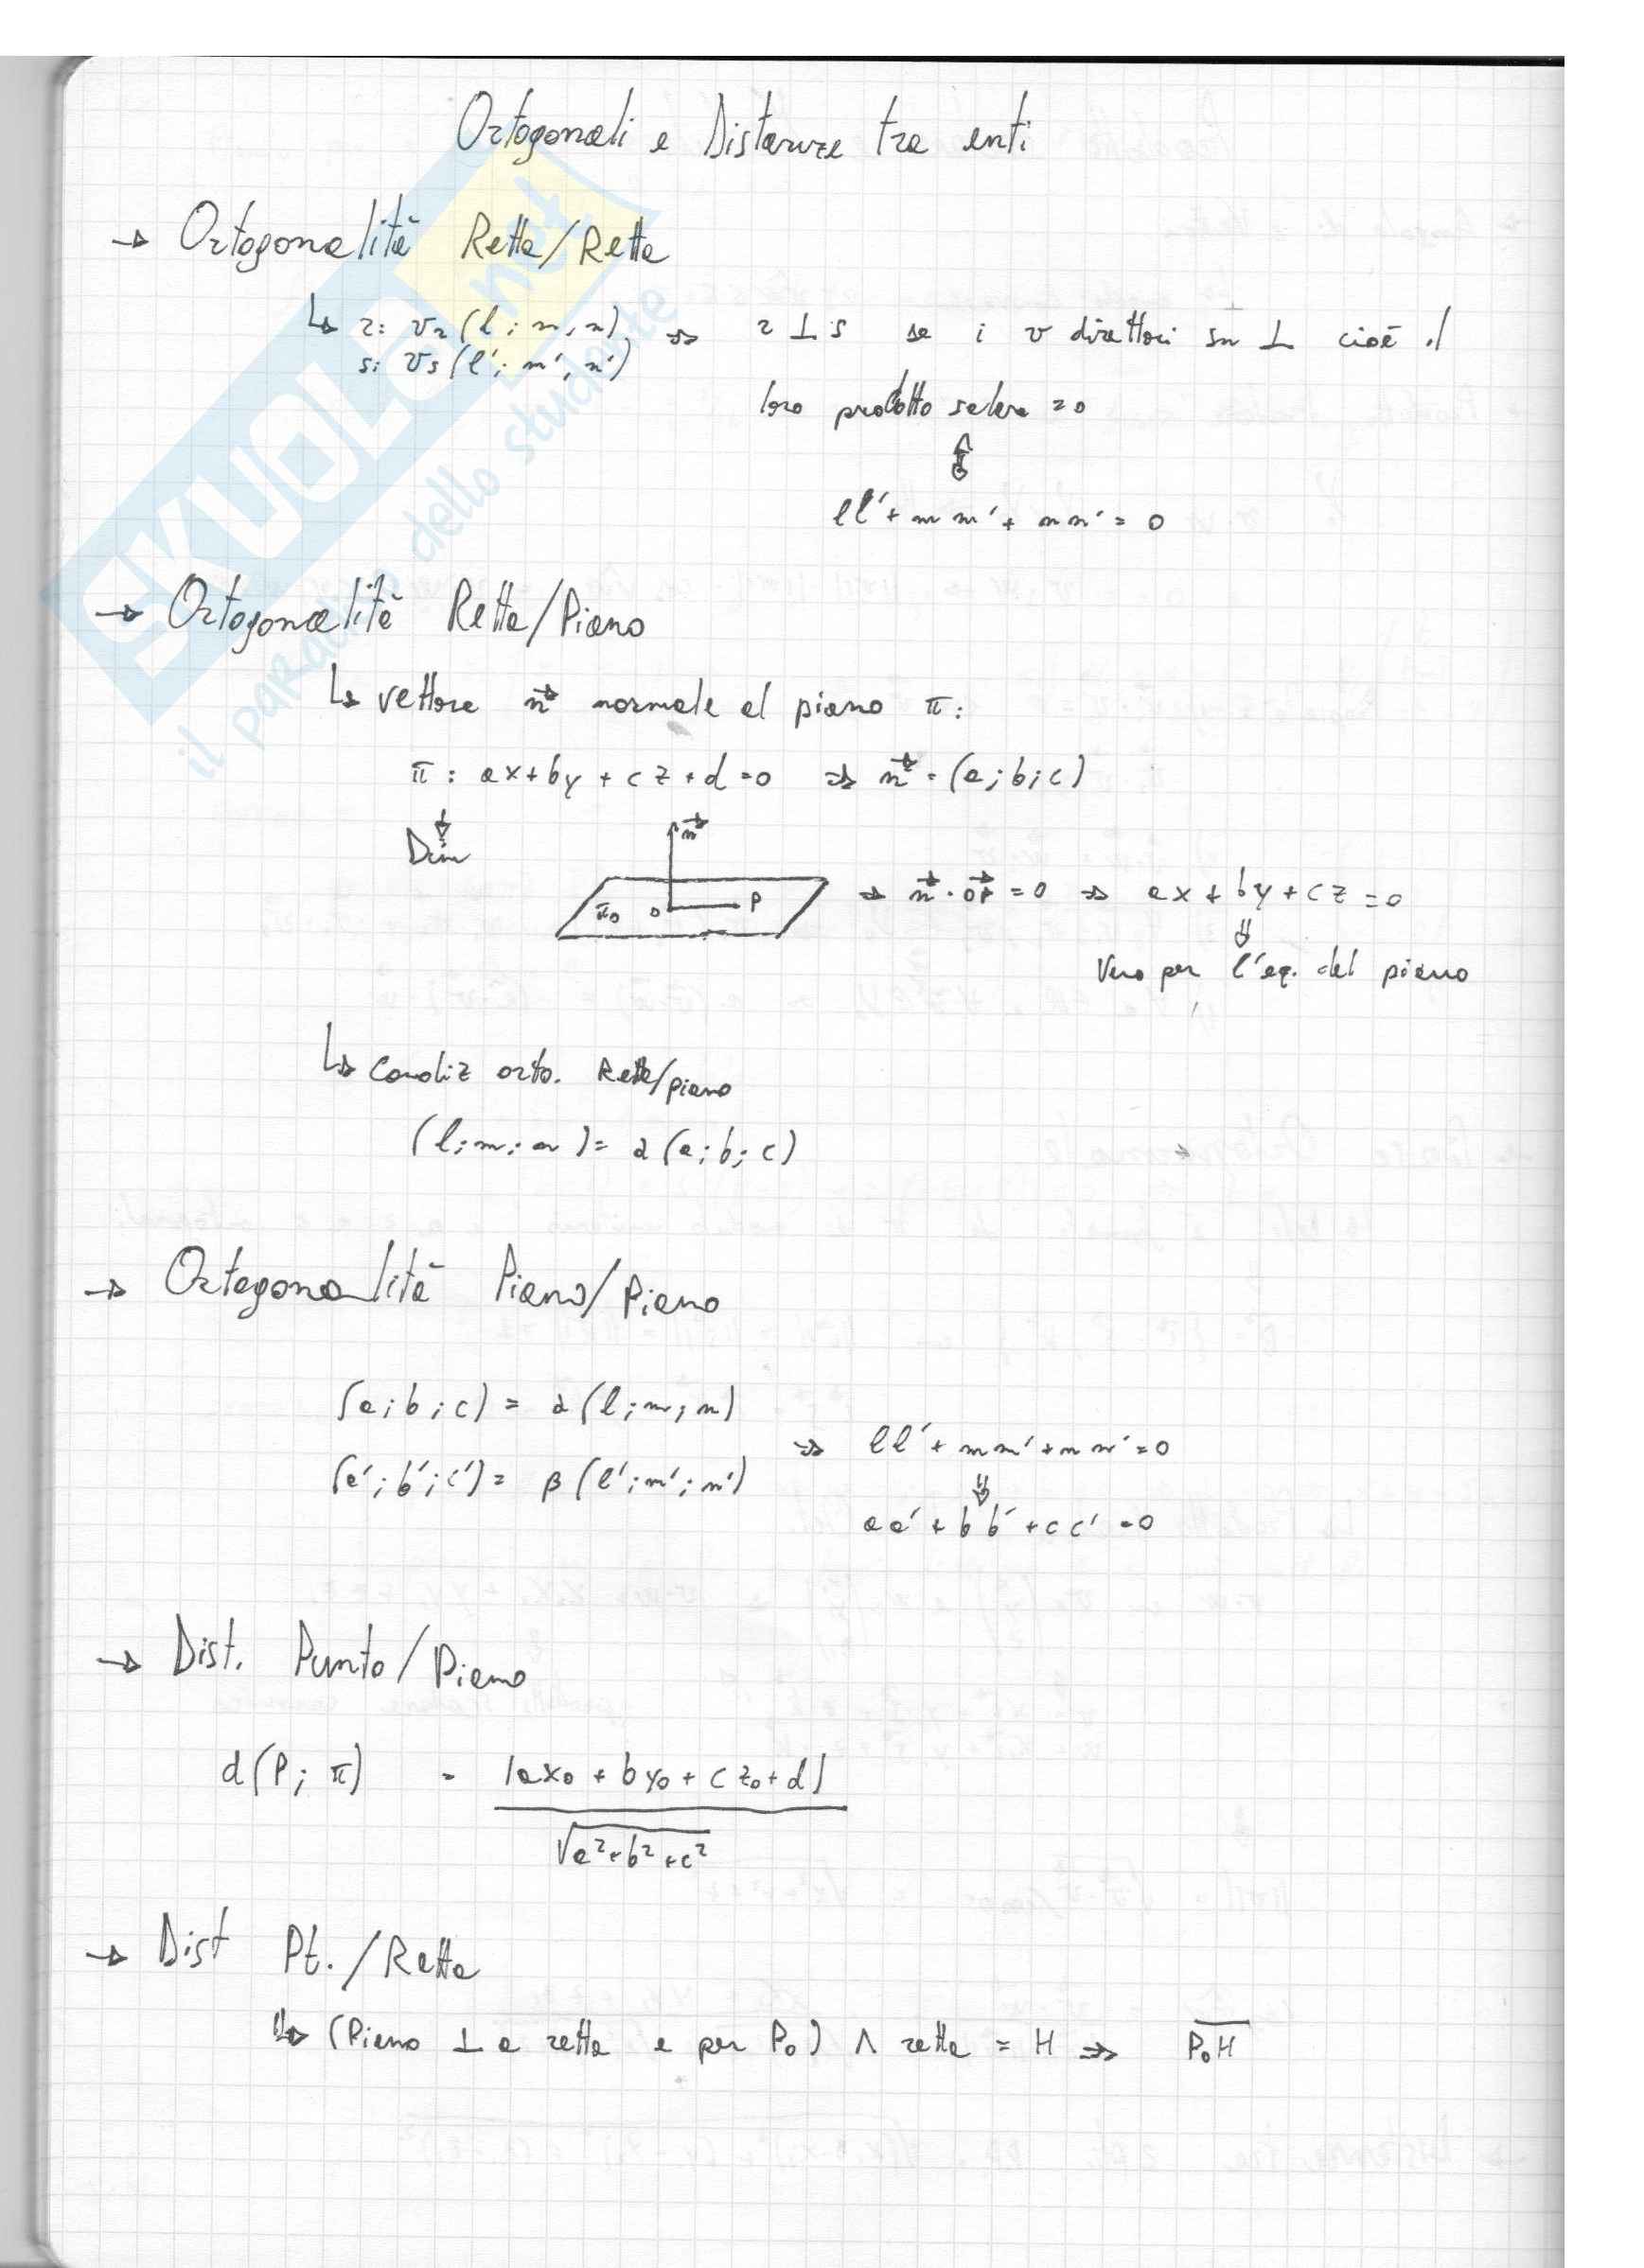 Ortogonali e Distanze tra enti
→ Ortogonalità Retta/Retta
↳ r: vr (l; m, n) ⇒ r ⊥ s se i v direttori sn ⊥ cioè il
s: vs (l'; m', n')
loro prodotto scalare = 0
⇕
ll' + mm' + nn' = 0
→ Ortogonalità Retta/Piano
↳ vettore n⃗ normale al piano π:
π: ax + by + cz + d = 0 ⇒ n⃗ = (a; b; c)
⇓
Dim
n⃗
π₀ O P ⇒ n⃗ · OP⃗ = 0 ⇒ ax + by + cz = 0
⇓
Vero per l'eq. del piano
↳ Condiz orto. Retta/piano
(l; m; n) = α (a; b; c)
→ Ortogonalità Piano/Piano
(a; b; c) = α (l; m; n)
(a'; b'; c') = β (l'; m'; n') ⇒ ll' + mm' + nn' = 0
⇓
aa' + bb' + cc' = 0
→ Dist. Punto/Piano
d(P; π) = |ax₀ + by₀ + cz₀ + d|
√a² + b² + c²
→ Dist Pt./Retta
↳ (Piano ⊥ a retta e per P₀) ∧ retta = H ⇒ P₀H
SKUOLA.net
il paradiso dello studente